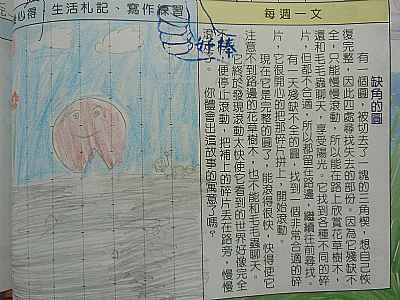 每週一文
缺角的圓
有一個圓,被切去了一塊的三角楔,想自己恢
復完整,因此四處尋找失去的部份。因為它殘缺不
全,只能慢慢滾動,所以能在路上欣賞花草樹木,
還和毛毛蟲聊天,享受陽光。它找到各種不同的碎
片,但都不合適,所以都留在路邊,繼續往前尋找。
有一天殘缺不全的圓,找到一個非常合適的碎
片,它很開心的把那碎片拼上,開始滾動。
現在它是完整的圓了,能滾得很快,快得使它
注意不到路邊的花草樹木,也不能和毛毛蟲聊天。
它終於發現滾動太快使它看到的世界好像完
不 便停止滾動,把補上的碎片丟在路旁,慢慢
了。 你體會出這故事的寓意了嗎?
生活札記、寫作練習
心得
好棒